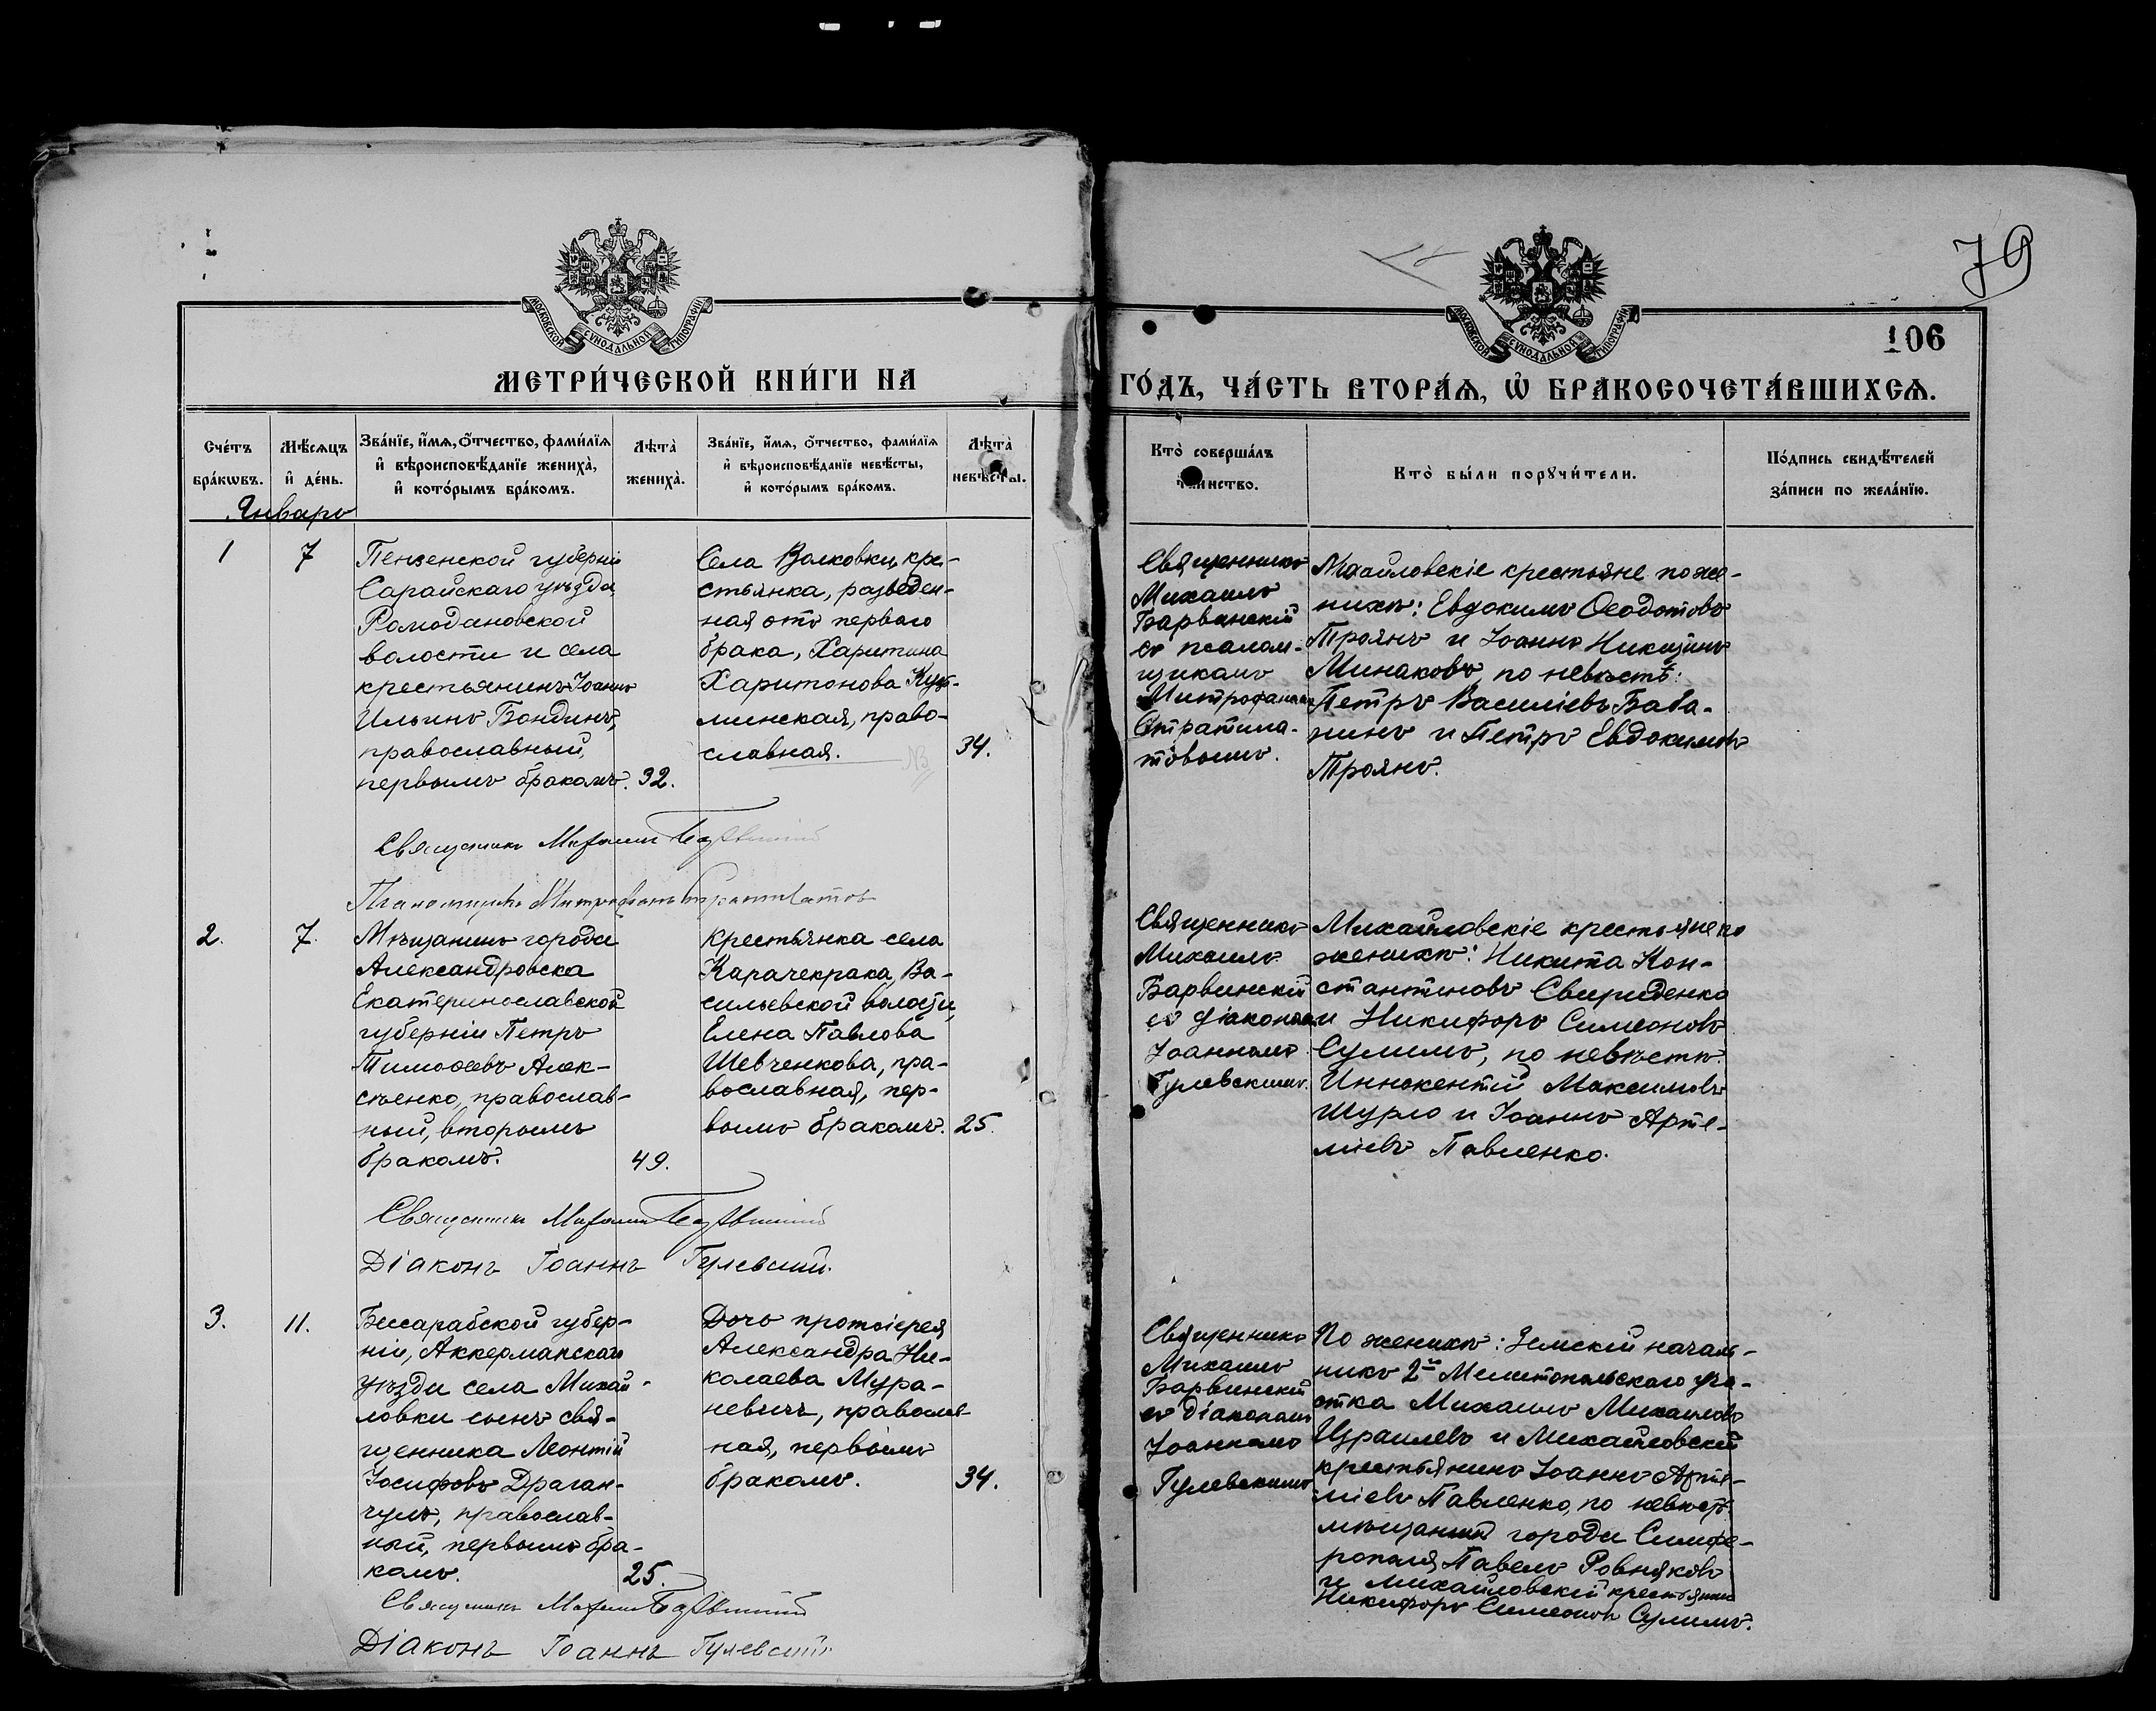 79
106
МОСКОВСКОЙ СѴНОДАЛЬНОЙ ТИПОГРАФІИ
МОСКОВСКОЙ СѴНОДАЛЬНОЙ ТИПОГРАФІИ
МЕТРИ́ЧЕСКОЙ КНИ́ГИ НА
ГО́ДЪ, ЧА́СТЬ ВТОРА́Ѧ, Ѡ҆ БРАКОСОЧЕТА́ВШИХСѦ.
Сче́тъ бра́кѡвъ.
Мѣ́сѧцъ и҆ де́нь.
Зва́нїе, и҆́мѧ, ѻ҆́тчество, фами́лїѧ
и҆ вѣроисповѣ́данїе жениха̀,
и҆ кото́рымъ бра́комъ.
Лѣта̀ жениха̀.
Зва́нїе, и҆́мѧ, ѻ҆́тчество, фами́лїѧ
и҆ вѣроисповѣ́данїе невѣ́сты,
и҆ кото́рымъ бра́комъ.
Лѣта̀ невѣ́сты.
Кто̀ соверша́лъ таинство.
Кто̀ бы́ли порꙋчи́тели.
По́дпись свидѣ́телей
за́писи по жела́нїю.
Январь
1
7
Пензенской губерніи
Сарайскаго уѣзда,
Ромодановской
волости и села
крестьянинъ Іоаннъ
Ильинъ Бондинъ,
православный,
первымъ бракомъ.
32.
Села Волковки, кре-
стьянка, разведен-
ная отъ перваго
брака, Харитина
Харитонова Куз-
минская, право-
славная.
34.
Священникъ
Михаилъ
Барвинскій
съ псалом-
щикомъ
Митрофаномъ
Стратила-
товымъ.
Михайловскіе крестьяне по же-
нихѣ: Евдокимъ Ѳеодотовъ
Троянъ и Іоаннъ Никитинъ
Минаковъ, по невѣстѣ:
Петръ Василіевъ Баба-
нинъ и Петръ Евдокимовъ
Троянъ.
Священникъ Михаилъ Барвинскій
Псаломщикъ Митрофанъ Стратилатовъ
2.
7.
Мѣщанинъ города
Александровска
Екатеринославской
губерніи Петръ
Тимоѳеевъ Алек-
сѣенко, православ-
ный, вторымъ
бракомъ.
49.
Крестьянка села
Карачекрака, Ва-
сильевской волости,
Елена Павлова
Шевченкова, пра-
вославная, пер-
вымъ бракомъ.
25.
Священникъ
Михаилъ
Барвинскій
съ діакономъ
Іоанномъ
Гулевскимъ.
Михайловскіе крестьяне по
женихѣ: Никита Кон-
стантиновъ Свириденко
и Никифоръ Симеоновъ
Сулимъ, по невѣстѣ:
Иннокентій Максимовъ
Шурло и Іоаннъ Арте-
міевъ Павленко.
Священникъ Михаилъ Барвинскій
Діаконъ Іоаннъ Гулевскій.
3.
11.
Бессарабской губер-
ніи, Аккерманскаго
уѣзда села Михай-
ловки сынъ свя-
щенника Леонтій
Іосифовъ Драган-
чулъ, православ-
ный, первымъ бра-
комъ.
25.
Дочь протоіерея
Александра Ни-
колаева Мура-
невичъ, православ-
ная, первымъ
бракомъ.
34.
Священникъ
Михаилъ
Барвинскій
съ діакономъ
Іоанномъ
Гулевскимъ
По женихѣ: Земскій началь-
никъ 2го Мелитопольскаго уча-
стка Михаилъ Михаиловъ
Израилевъ и Михайловскій
крестьянинъ Іоаннъ Арте-
міевъ Павленко, по невѣстѣ:
мѣщанинъ города Симфе-
рополя Павелъ Ровняковъ
и Михайловскій крестьянинъ
Никифоръ Симеоновъ Сулимъ.
Священникъ Михаилъ Барвинскій
Діаконъ Іоаннъ Гулевскій